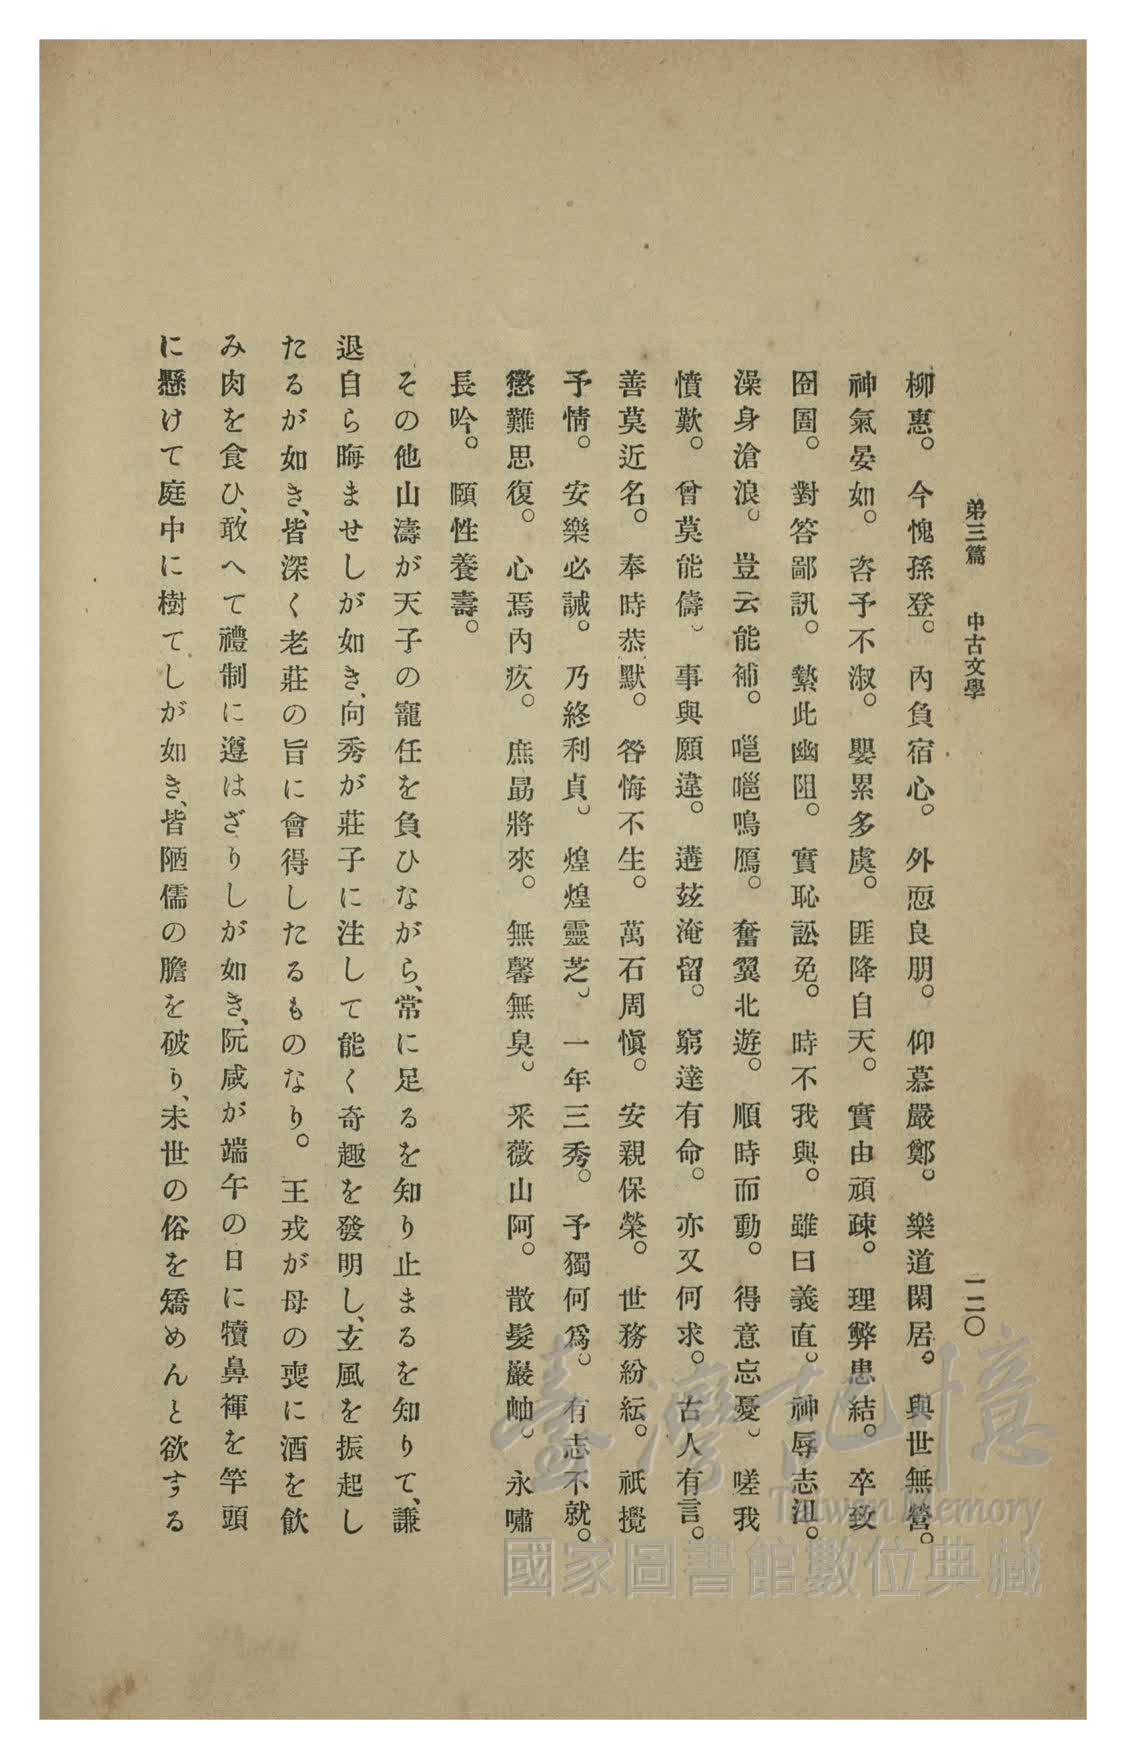 第三篇　中古文學
一二〇
柳惠。今愧孫登。內負宿心。外恧良朋。仰慕嚴鄭。樂道閑居。與世無營。
神氣晏如。咨予不淑。嬰累多虞。匪降自天。實由頑疎。理弊患結。卒致
囹圄。對答鄙訊。縶此幽阻。實恥訟免。時不我與。雖曰義直。神辱志沮。
澡身滄浪。豈云能補。嗈嗈鳴鴈。奮翼北遊。順時而動。得意忘憂。嗟我
憤歎。曾莫能儔。事與願違。遘玆淹留。窮達有命。亦又何求。古人有言。
善莫近名。奉時恭默。咎悔不生。萬石周愼。安親保榮。世務紛紜。祇攪
予情。安樂必誡。乃終利貞。煌煌靈芝。一年三秀。予獨何爲。有志不就。
懲難思復。心焉內疚。庶勗將來。無馨無臭。采薇山阿。散髮巖岫。永嘯
長吟。頤性養壽。
その他山濤が天子の寵任を負ひながら、常に足るを知り止まるを知りて、謙
退自ら晦ませしが如き、向秀が莊子に注して能く奇趣を發明し、玄風を振起し
たるが如き、皆深く老莊の旨に會得したるものなり。王戎が母の喪に酒を飮
み肉を食ひ、敢へて禮制に遵はざりしが如き、阮咸が端午の日に犢鼻褌を竿頭
に懸けて庭中に樹てしが如き、皆陋儒の膽を破り、末世の俗を矯めんと欲する
臺灣記憶
Taiwan Memory
國家圖書館數位典藏